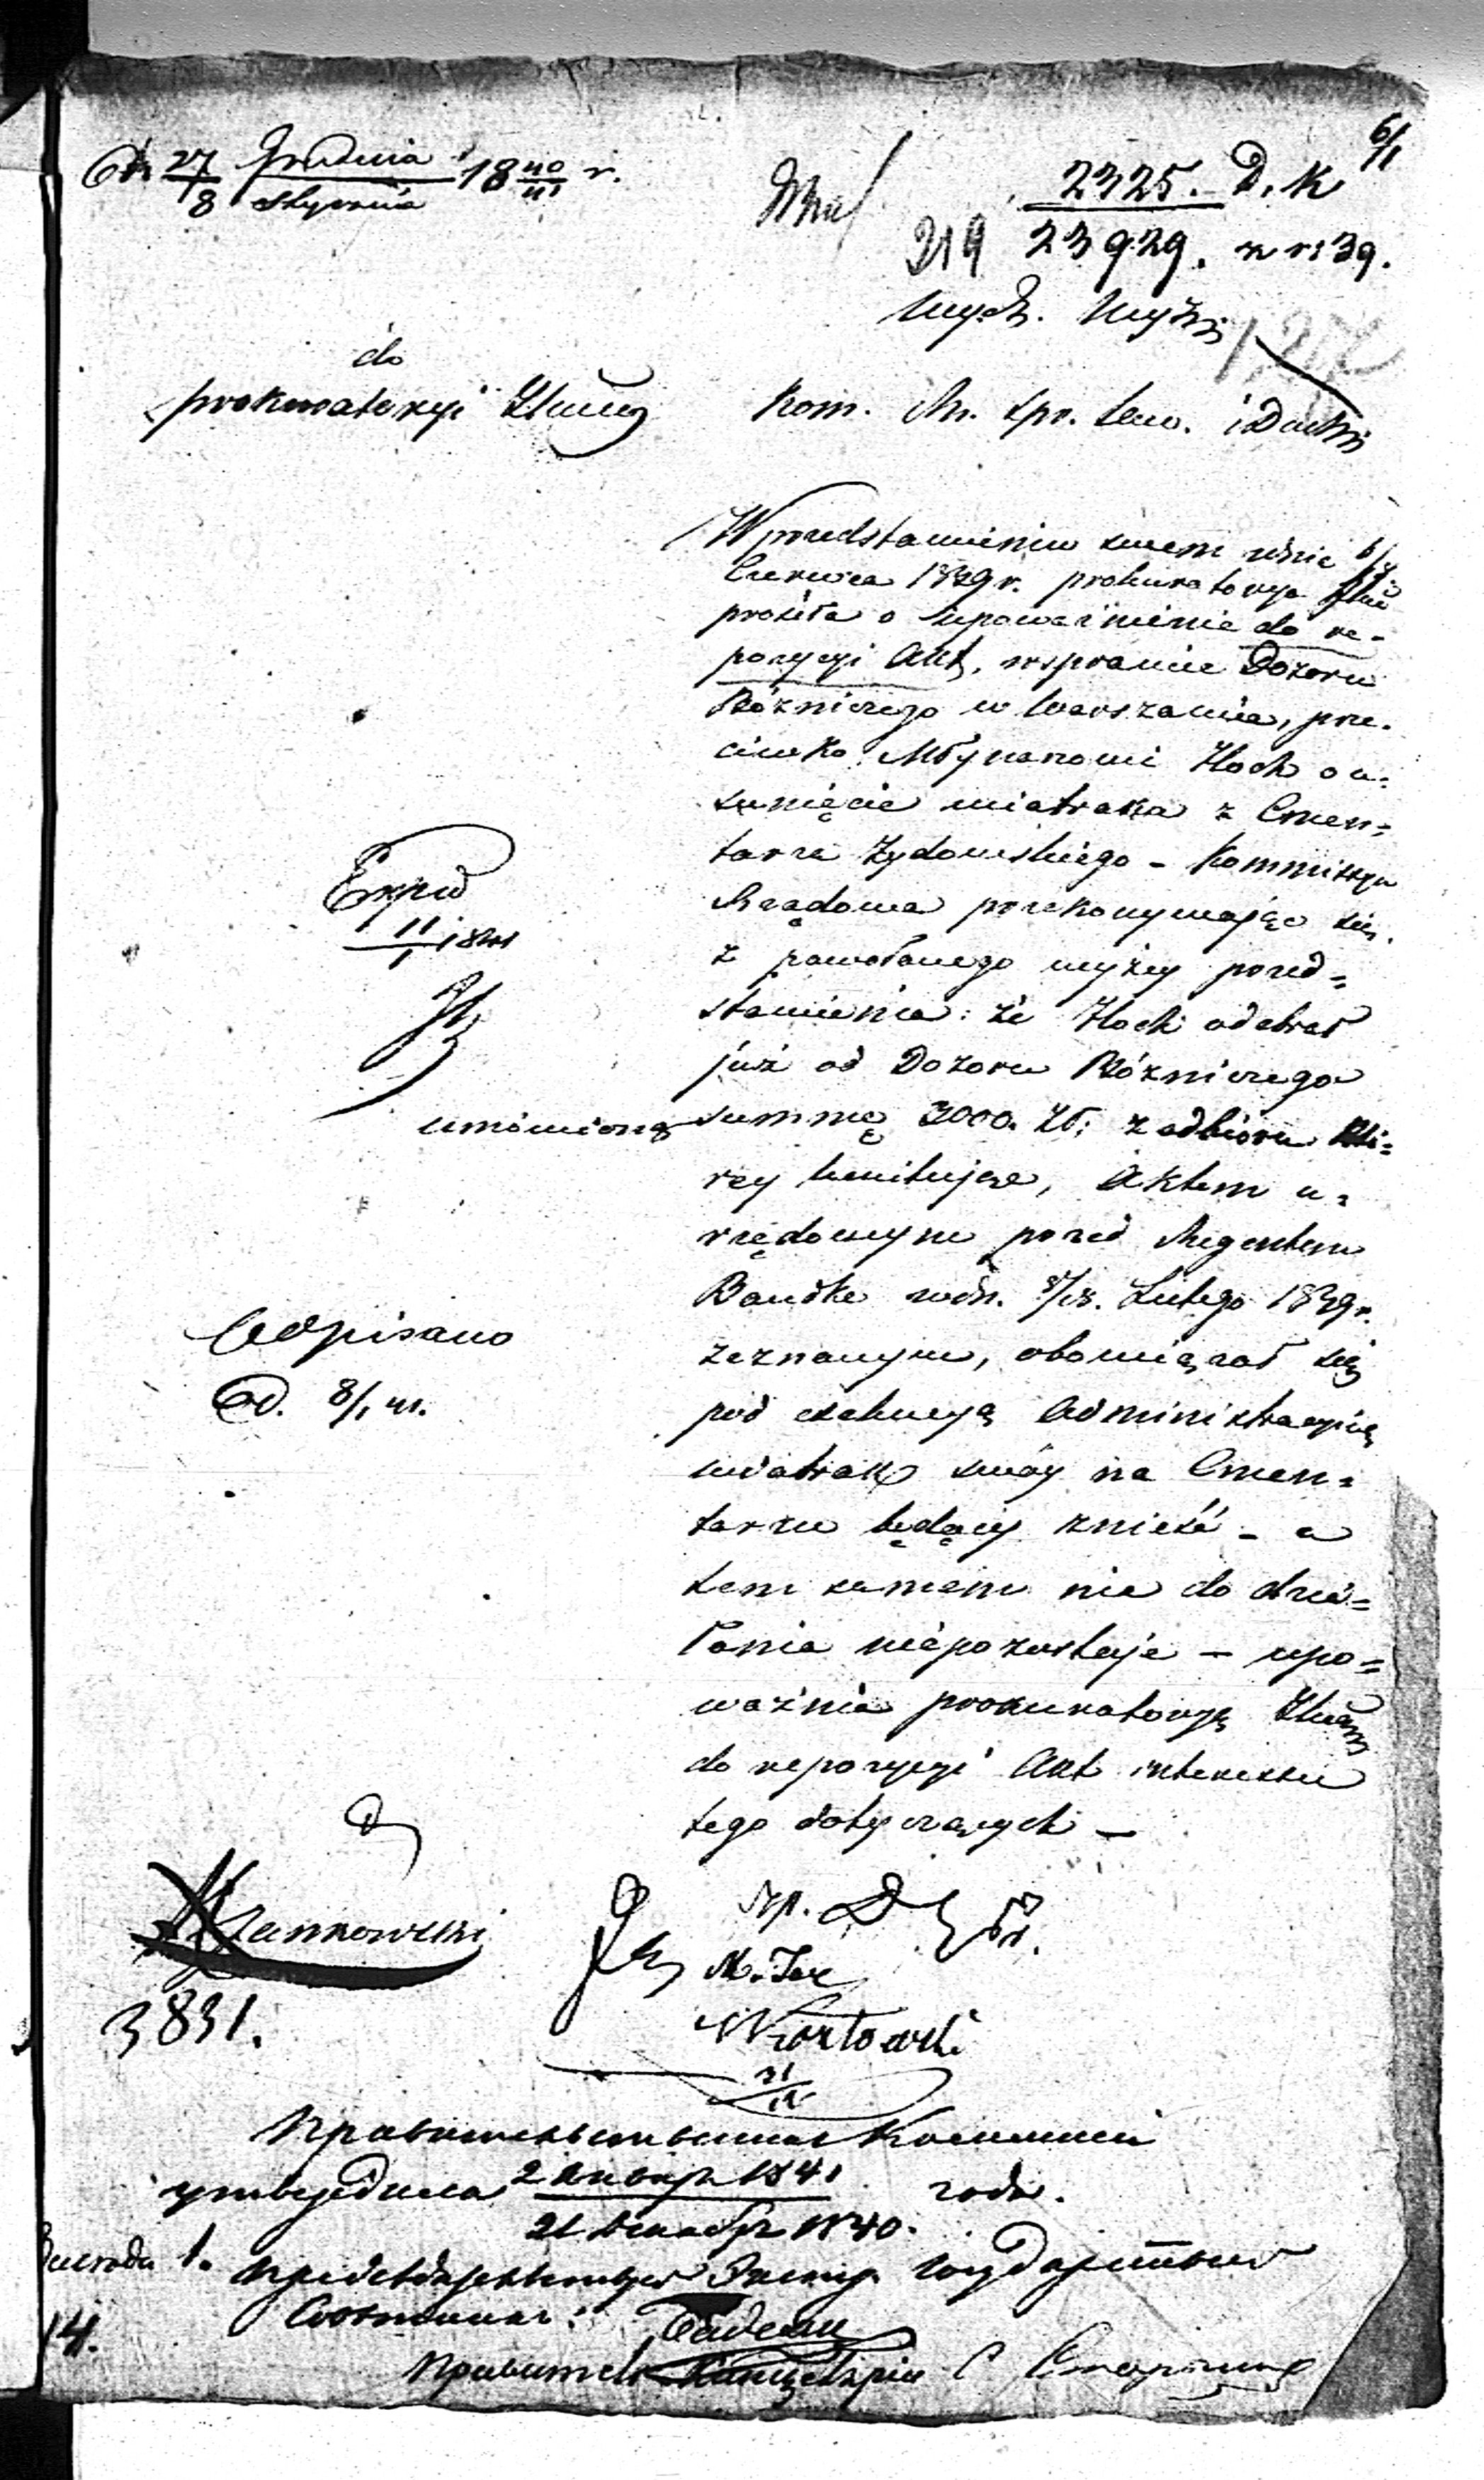 27 Grudnia 1840 r.
8 Stycznia 41
6/1
2325. D. K
219 23929. z r: 39.
Wych. Wyzn
do
prokuratoryi
Kom. Rz. Spr. Wew. i Duch
W przedstawieniu swem w dnie
Czerwca 1839 r. prokuratorya
prosiła o upoważnienie do re-
pozycyi Akt, w sprawie Dozoru
Bóżniczego w Warszawie, prze-
ciwko Młynarowi Hoch o u-
sunięcie wiatraka z Cmen-
tarza Żydowskiego - Kommissya
Rządowa przekonywając się
z powołanego wyżey przed-
stawienia: że Hoch odebrał
już od Dozoru Bóżniczego
umówioną summę 3000. Zł: z odbioru któ-
rey kwitując, Aktem u-
rzędowym przed Regentem
Bandtke w dn. Lutego 1839 r.
zeznanym, obowiązał się
pod exekucyą Administracyiną
wiatrak swóy na Cmen-
tarzu będący znieść - a
tem samem nic do dzia-
łania niepozostaje - upo-
ważnia prokuratoryą
do repozycyi Akt interessu
tego dotyczących -
Exped
11/1 1841
Odpisano
8/1 41.
Jankowski
3831.
Kozłowski
Правительственная Коммисія
утвердила 2 Января 1841 года.
21 Декабря 1840.
1.
14.
Правитель Канцеляріи